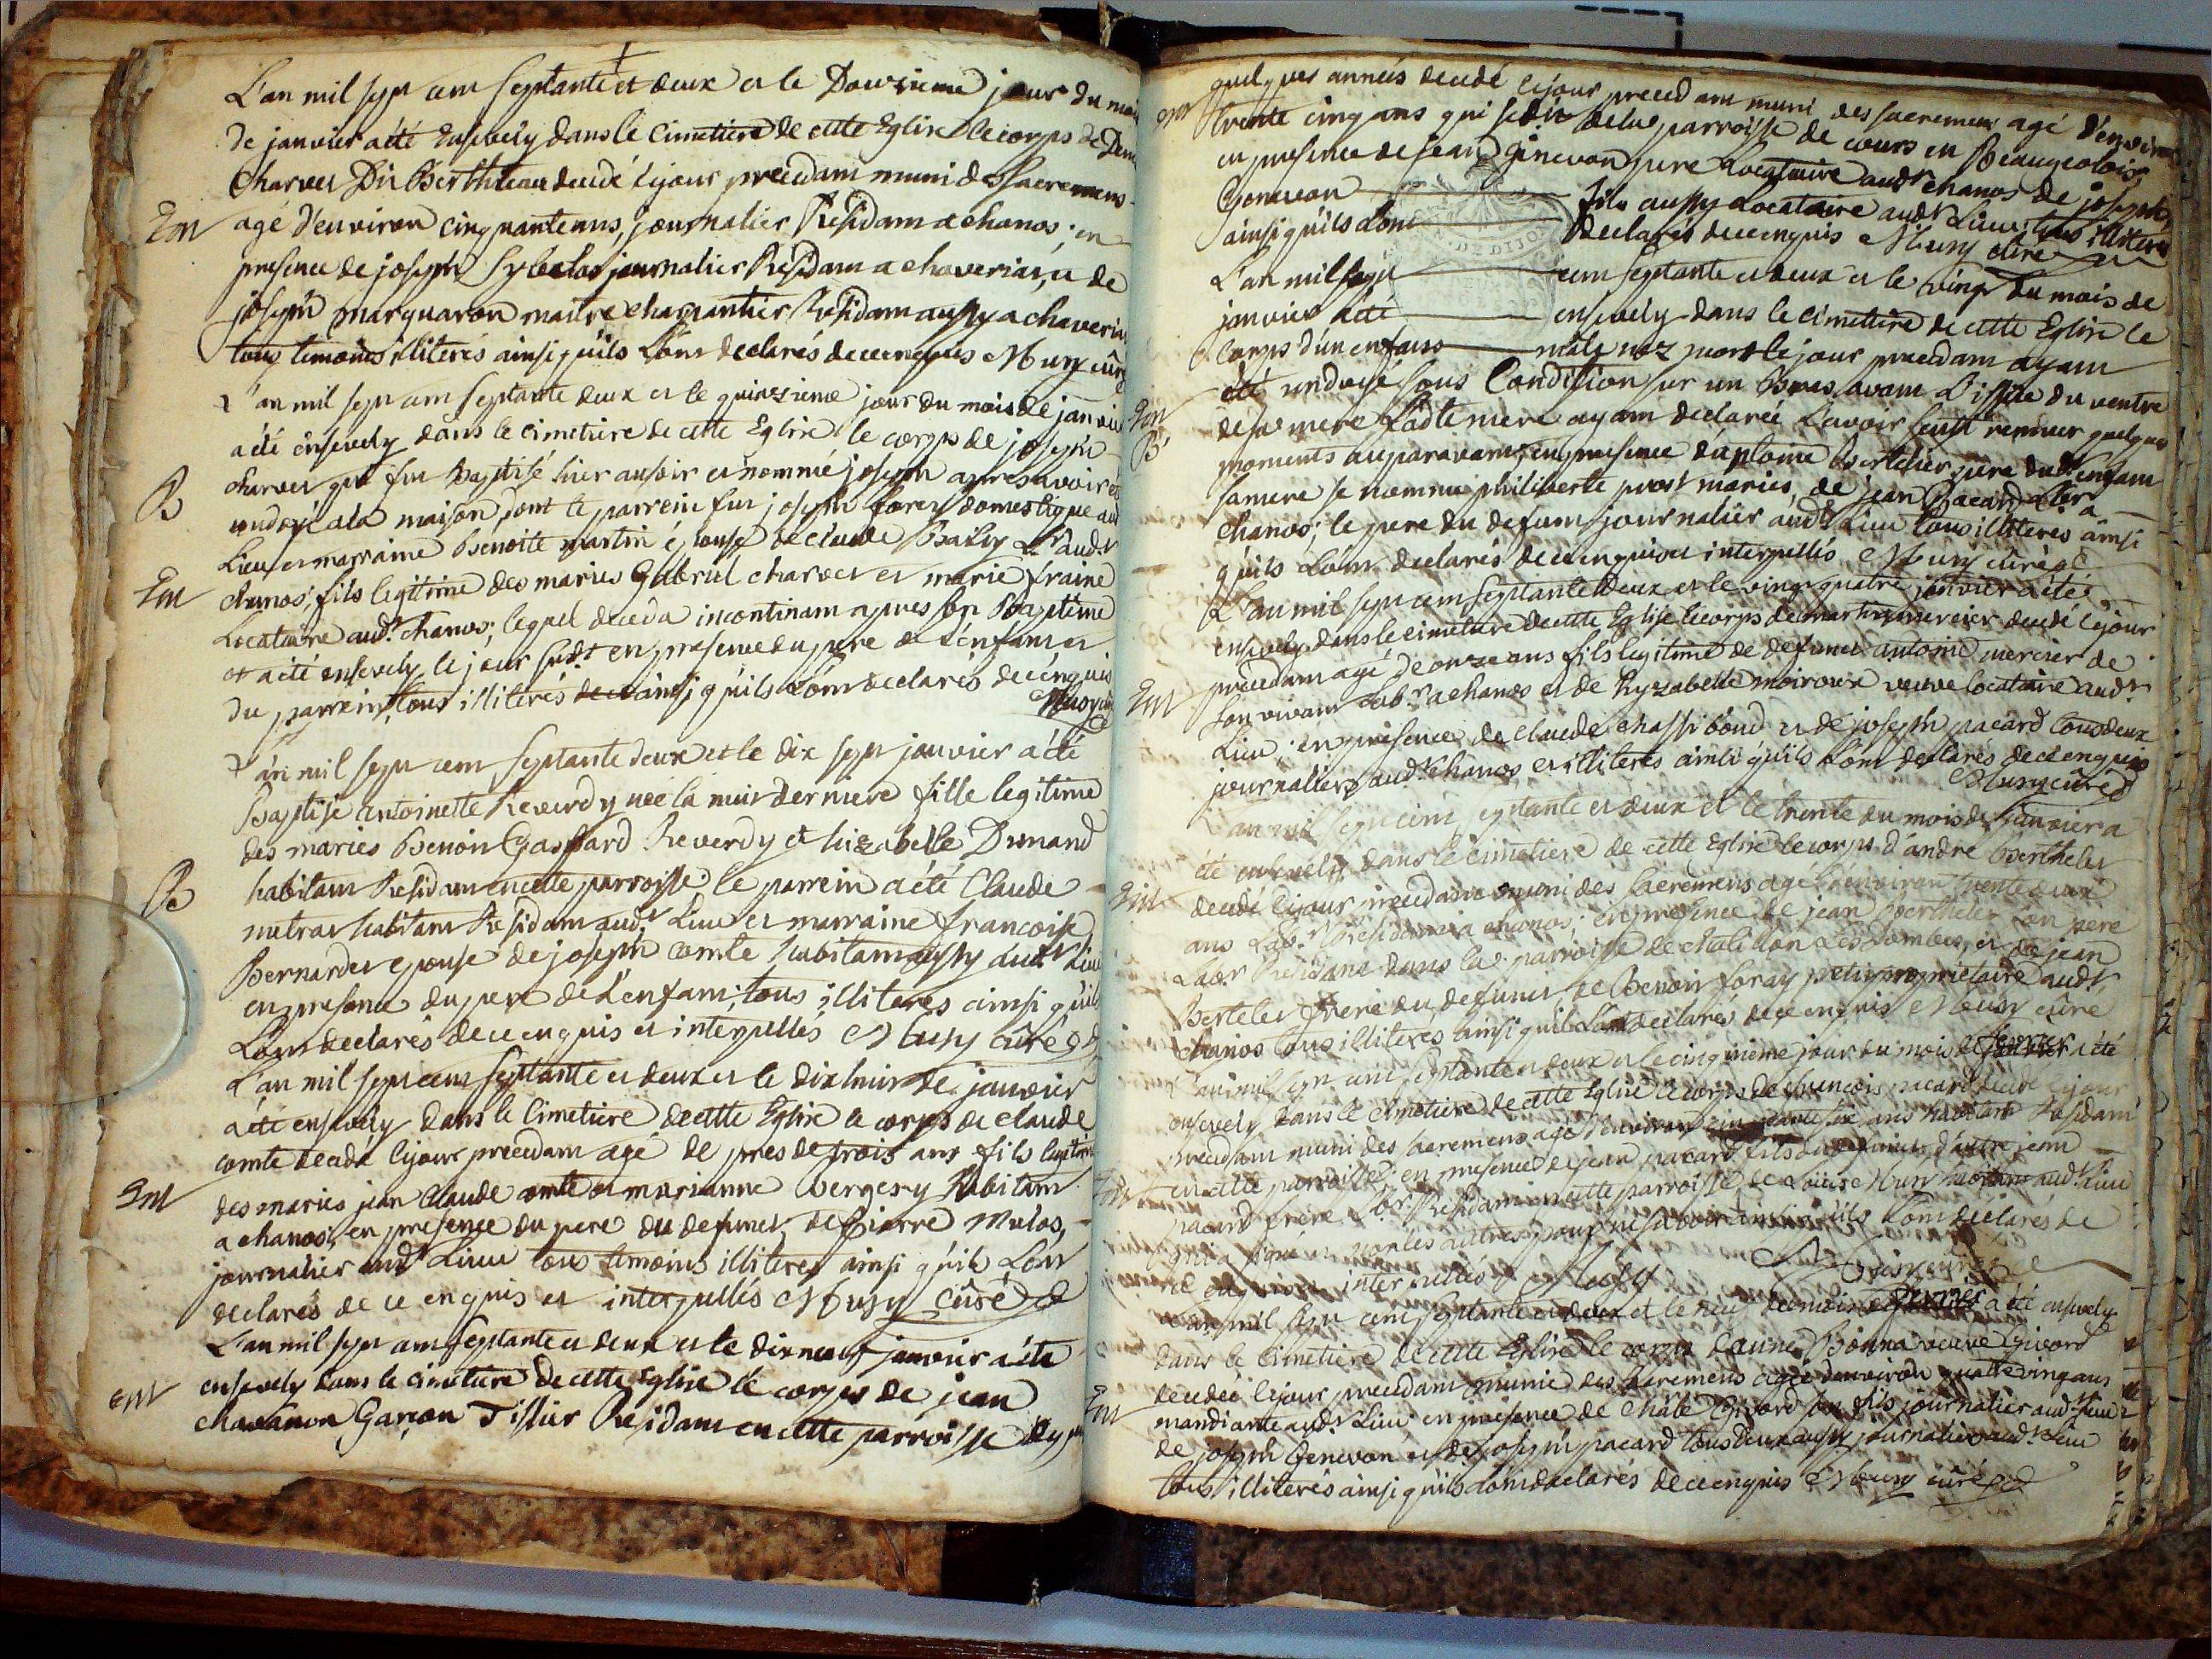 L'an mil sept cent septante et deux et le Douzieme jour du mois
de janvier a été Ensevely dans le Cimetiere de cette Eglise le corps de
Charvet Dit Berthteau decedé le jour precedant muni des Sacremens
Em agé d'environ cinquante ans, journalier Residant a chanos; en
presence de joseph journalier Residant a chaveriat, et de
joseph marguaron maitre charpantier Residant aussy a chaveriat
tous temoins illiterés ainsi quils L'ont declarés de ce enquis Musy curé
L'an mil sept cent septante deux et le quinzieme jour du mois de janvier
a été ensevely dans le cimetiere de cette Eglise le corps de joseph
B charvet qui fut Baptisé hier au soir et nommé joseph apres avoir eté
ondoyé a la maison, dont le parrein fut joseph forey domestique aud.
Lieu et marraine Benoite martin épouse de Claude Bailly aud.t
Em chanos; fils legitime des mariés Gabriel charvet et marie fraine
Locataire aud.t chanos; lequel deceda incontinant apres son Baptême
et a été ensevely le jour sud.t en presence du pere de L'enfant et
du parrein, tous illiterés ainsi quils L'ont declarés de ce enquis
Musy curé
L'an mil sept cent septante deux et le dix sept janvier a été
Baptisé antoinette Reverdy née la nuit derniere fille legitime
des mariés Benoit Gaspard Reverdy et hizabelle Dunand
B habitans Residans en cette parroisse; le parrein a été Claude
mutras habitant Residant aud.t Lieu et marraine françoise
Bernardet epouse de joseph comte habitant aussy aud.t Lieu
en presence du pere de L'enfant; tous illiterés ainsi qu'ils
L'ont declarés de ce enquis et interpellés Musy curé
L'an mil sept cent septante et deux et le dix huit de janvier
a été ensevely dans le Cimetiere de cette Eglise le corps de claude
comte decedé le jour precedant agé de pres de trois ans fils legitime
Em des mariés jean Claude comte et marianne Vergery habitant
a chanos; en presence du pere du defunct, de Pierre Mulas,
journalier aud.t Lieu tous temoins illiterés ainsi qu'ils L'ont
declarés de ce enquis et interpellés Musy curé
L'an mil sept cent septante et deux et le dix neuf janvier a été
Em ensevely dans le cimetiere de cette Eglise le corps de jean
chavanon Garçon Tissier Residant en cette parroisse depuis
quelques années decedé le jour precedant muni des sacremens agé d'environ
Em trente cinq ans qui se dit de la parroisse de cours en Beaugeolois,
en presence de jean Genevon pere Locataire aud.t chanos de joseph
Genevon fils aussy Locataire aud.t Lieu; tous illiterés
ainsi qu'ils L'ont declarés de ce enquis Musy curé
L'an mil sept cent septante et deux et le vingt du mois de
janvier a été ensevely dans le cimetiere de cette Eglise le
corps d'un enfant mâle nez mort le jour precedant ayant
Em été ondoyé sous Condition sur un Bras avant L'issue du ventre
B de sa mere Ladte mere ayant declarée L'avoir senti remuer quelques
moments auparavant, en presence d'aptoine Bertelier pere dud.t enfant
sa mere se nomme philiberte prost mariés, de jean Pacard a
chanos; le pere du defunt journalier aud.t Lieu tous illiterés ainsi
qu'ils L'ont declarés de ce enquis et interpellés Musy curé
L'an mil sept cent septante Deux et le vingt quatre janvier a été
ensevely dans le cimetiere de cette Eglise le corps de martin mercier decedé le jour
precedant agé de onze ans fils legitime de defunct antoine mercier de
Em son vivant Lab.r a chanos et de hyzabelle moiroux veuve locataire aud.t
Lieu; en presence de Claude chassiboud et de joseph pacard tous deux
journaliers aud.t chanos et illiterés ainsi qu'ils L'ont declarés de ce enquis
Musy curé
L'an mil sept cent septante et deux et le trente du mois de janvier a
été ensevely dans le cimetiere de cette Eglise le corps d'andré Berthelet
Em decedé le jour precedant muni des Sacremens agé d'environ trente deux
ans Lab.r Residant a chanos; en presence de jean Berthelet son pere
Lab.r Residant dans la parroisse de chatillon Les Dombes, et de jean
Bertelet frere du defunct, de Benoit foray petit proprietaire aud.t
chanos tous illiterés ainsi quils L'ont declarés de ce enquis Musy curé
L'an mil sept cent septante et deux et le cinquieme jour du mois de fevrier a été
ensevely dans le cimetiere de cette Eglise le corps de françois pacard decedé le jour
precedant muni des Sacremens agé d'environ ans habitant Residant
en cette parroisse; en presence de jean pacard fils du defunct, d'autre jean
Em pacard frere Lab.r Residant en cette parroisse de Musy habitant aud.t Lieu
qui a signé et non les autres pour ne sçavoir ainsi qu'ils L'ont declarés de
ce enquis et interpellés Musy
L'an mil sept cent septante et deux et le neuf du mois de fevrier a été ensevely
dans le Cimetiere de cette Eglise le corps d'anne Bonna veuve Givord
decedée le jour precedant munie des Sacremens agée d'environ quatre vingt ans
Em mandiante aud.t Lieu; en presence de Givord son fils journalier aud.t Lieu
de joseph Genevon et de joseph pacard tous deux aussy journaliers aud.t Lieu
tous illiterés ainsi qu'ils L'ont declarés de ce enquis Musy curé